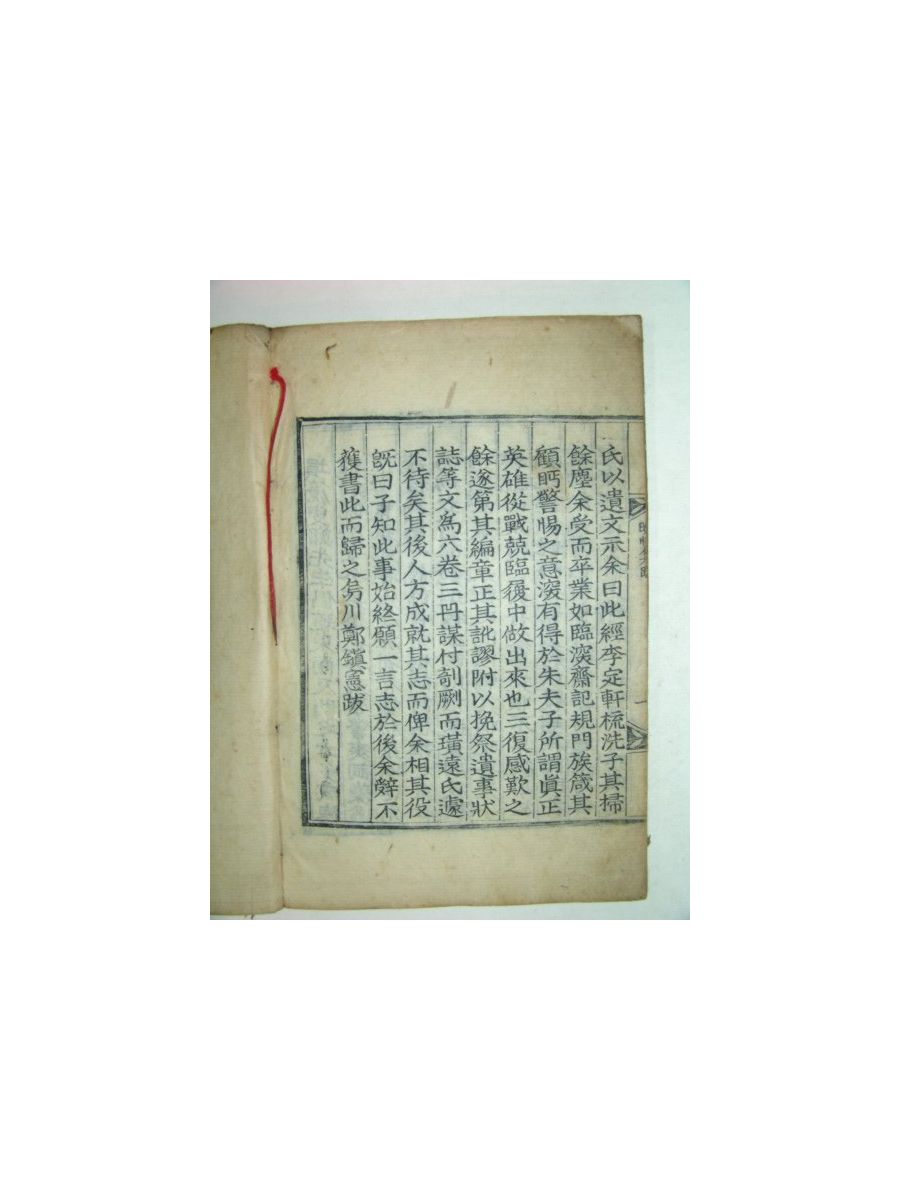 氏以遺文示余曰此經李定軒梳洗子其掃
餘塵余受而卒業如臨溪齋記規門族箴其
顧眄警惕之意深有得於朱夫子所謂眞正
英雄從戰兢臨履中做出來也三復感歎之
餘遂第其編章正其訛謬附以挽祭遺事狀
誌等文爲六卷三冊謀付剞劂而璜遠氏遽
不待矣其後人方成就其志而俾余相其役
旣曰子知此事始終願一言志於後余辭不
獲書此而歸之烏川鄭鎭憲跋